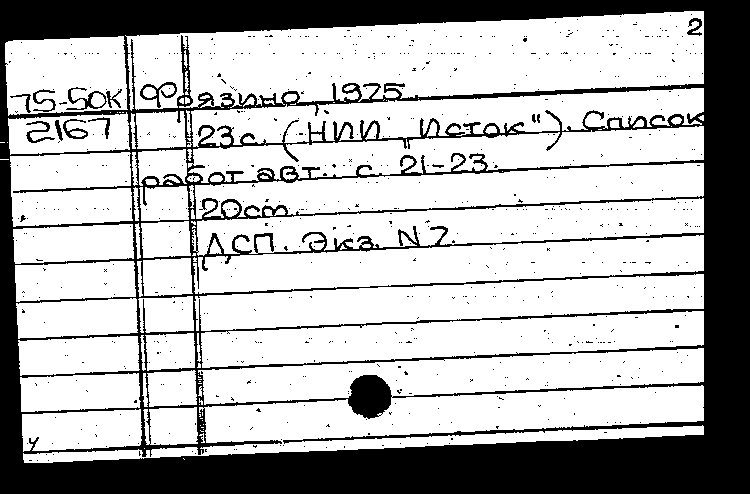 2
75-50К Фрязино, 1975.
2167 23с. (НИИ „Исток"). Список
работ авт.: с. 21-23.
20cm.
ДСП. Экз. N 7.